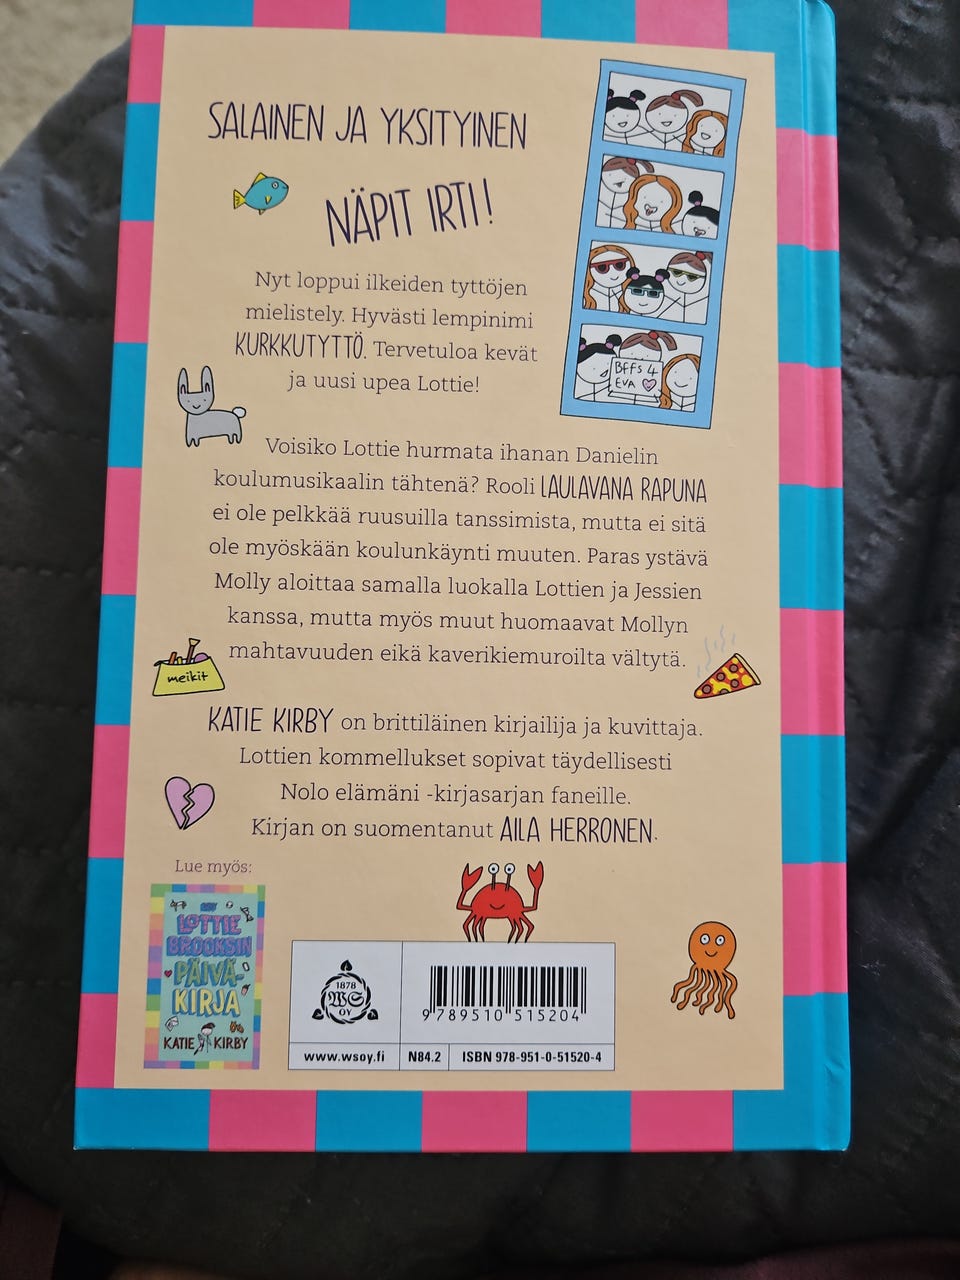 SALAINEN JA YKSITYINEN
NÄPIT IRTI!
Nyt loppui ilkeiden tyttöjen
mielistely. Hyvästi lempinimi
KURKKUTYTTÖ. Tervetuloa kevät
ja uusi upea Lottie!
BFFS 4
EVA
Voisiko Lottie hurmata ihanan Danielin
koulumusikaalin tähtenä? Rooli LAULAVANA RAPUNA
ei ole pelkkää ruusuilla tanssimista, mutta ei sitä
ole myöskään koulunkäynti muuten. Paras ystävä
Molly aloittaa samalla luokalla Lottien ja Jessien
kanssa, mutta myös muut huomaavat Mollyn
mahtavuuden eikä kaverikiemuroilta vältytä.
meikit
KATIE KIRBY on brittiläinen kirjailija ja kuvittaja.
Lottien kommellukset sopivat täydellisesti
Nolo elämäni -kirjasarjan faneille.
Kirjan on suomentanut AILA HERRONEN.
Lue myös:
LOTTIE
BROOKSIN
PÄIVÄ-
KIRJA
KATIE KIRBY
1878
WS
OY
9 789510 515204
www.wsoy.fi
N84.2
ISBN 978-951-0-51520-4